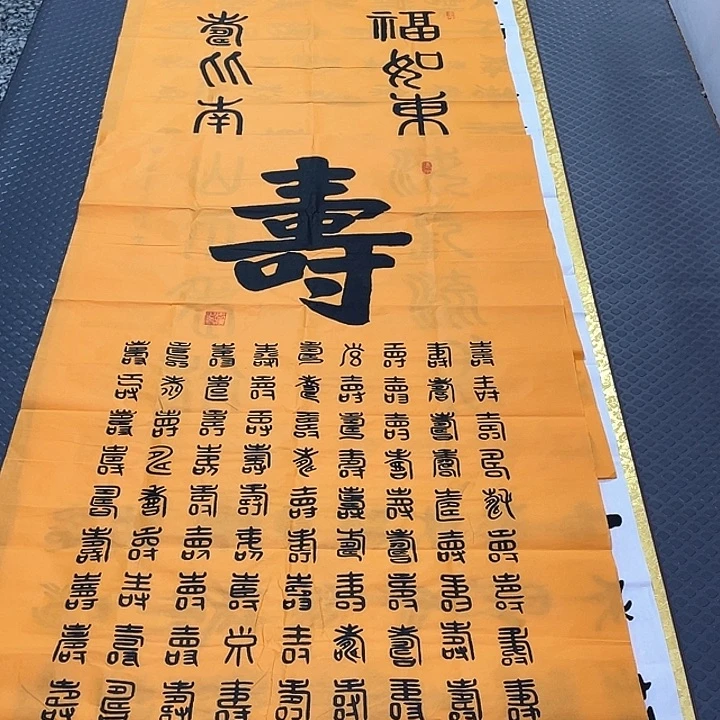 福如東
壽比南
壽
壽壽壽壽壽壽壽壽壽
壽壽壽壽壽壽壽壽壽
壽壽壽壽壽壽壽壽壽
壽壽壽壽壽壽壽壽壽
壽壽壽壽壽壽壽壽壽
壽壽壽壽壽壽壽壽壽
壽壽壽壽壽壽壽壽壽
壽壽壽壽壽壽壽壽壽
壽壽壽壽壽壽壽壽壽